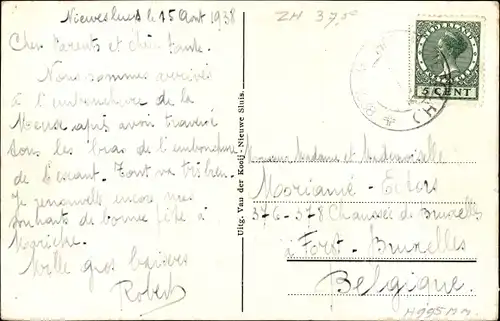 Nieuwesluis le 15 Août 1938
Chers Parents et chère tante.
Nous sommes arrivés
à l'embouchure de la
Meuse après avoir traversé
tous les bras de l'embouchure
de l'Escaut. Tout va très bien.
Je renouvelle encore mes
souhaits de bonne fête à
Mille gros baisers
Robert
Uitg. Van der Kooij. Nieuwe Sluis.
ZH 37,5
NEDERLAND
5 CENT
Monsieur Madame et Mademoiselle
Moriamé - Ectors
376-378 Chaussée de Bruxelles
à Forest - Bruxelles
Belgique.